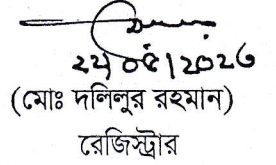 ২২/০৫/২০২৩
(মোঃ দলিলুর রহমান)
রেজিস্ট্রার